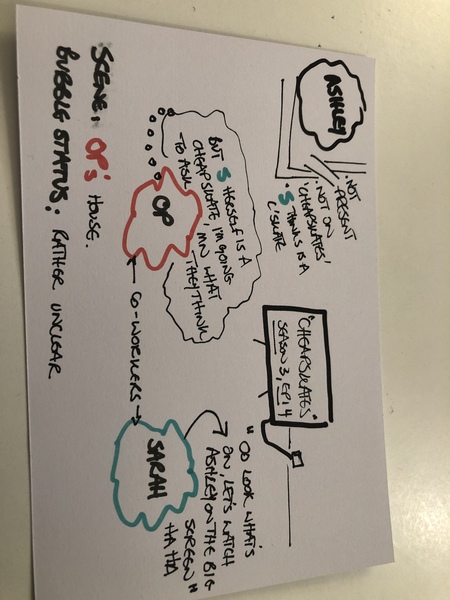 ASHLEY
• NOT
PRESENT
• NOT ON
'CHEAPSKATES'
• S THINKS IS A
C'SKATE
"CHEAPSKATES"
SEASN 3, EP14
BUT S HERSELF IS A
CHEAPSKATE, I'M GOING
TO ASK MN WHAT
THEY THINK
OP
"OO LOOK WHAT'S
ON, LET'S WATCH
ASHLEY ON THE BIG
SCREEN"
HA HA
← CO-WORKERS →
SARAH
SCENE: OP'S HOUSE.
BUBBLE STATUS: RATHER UNCLEAR